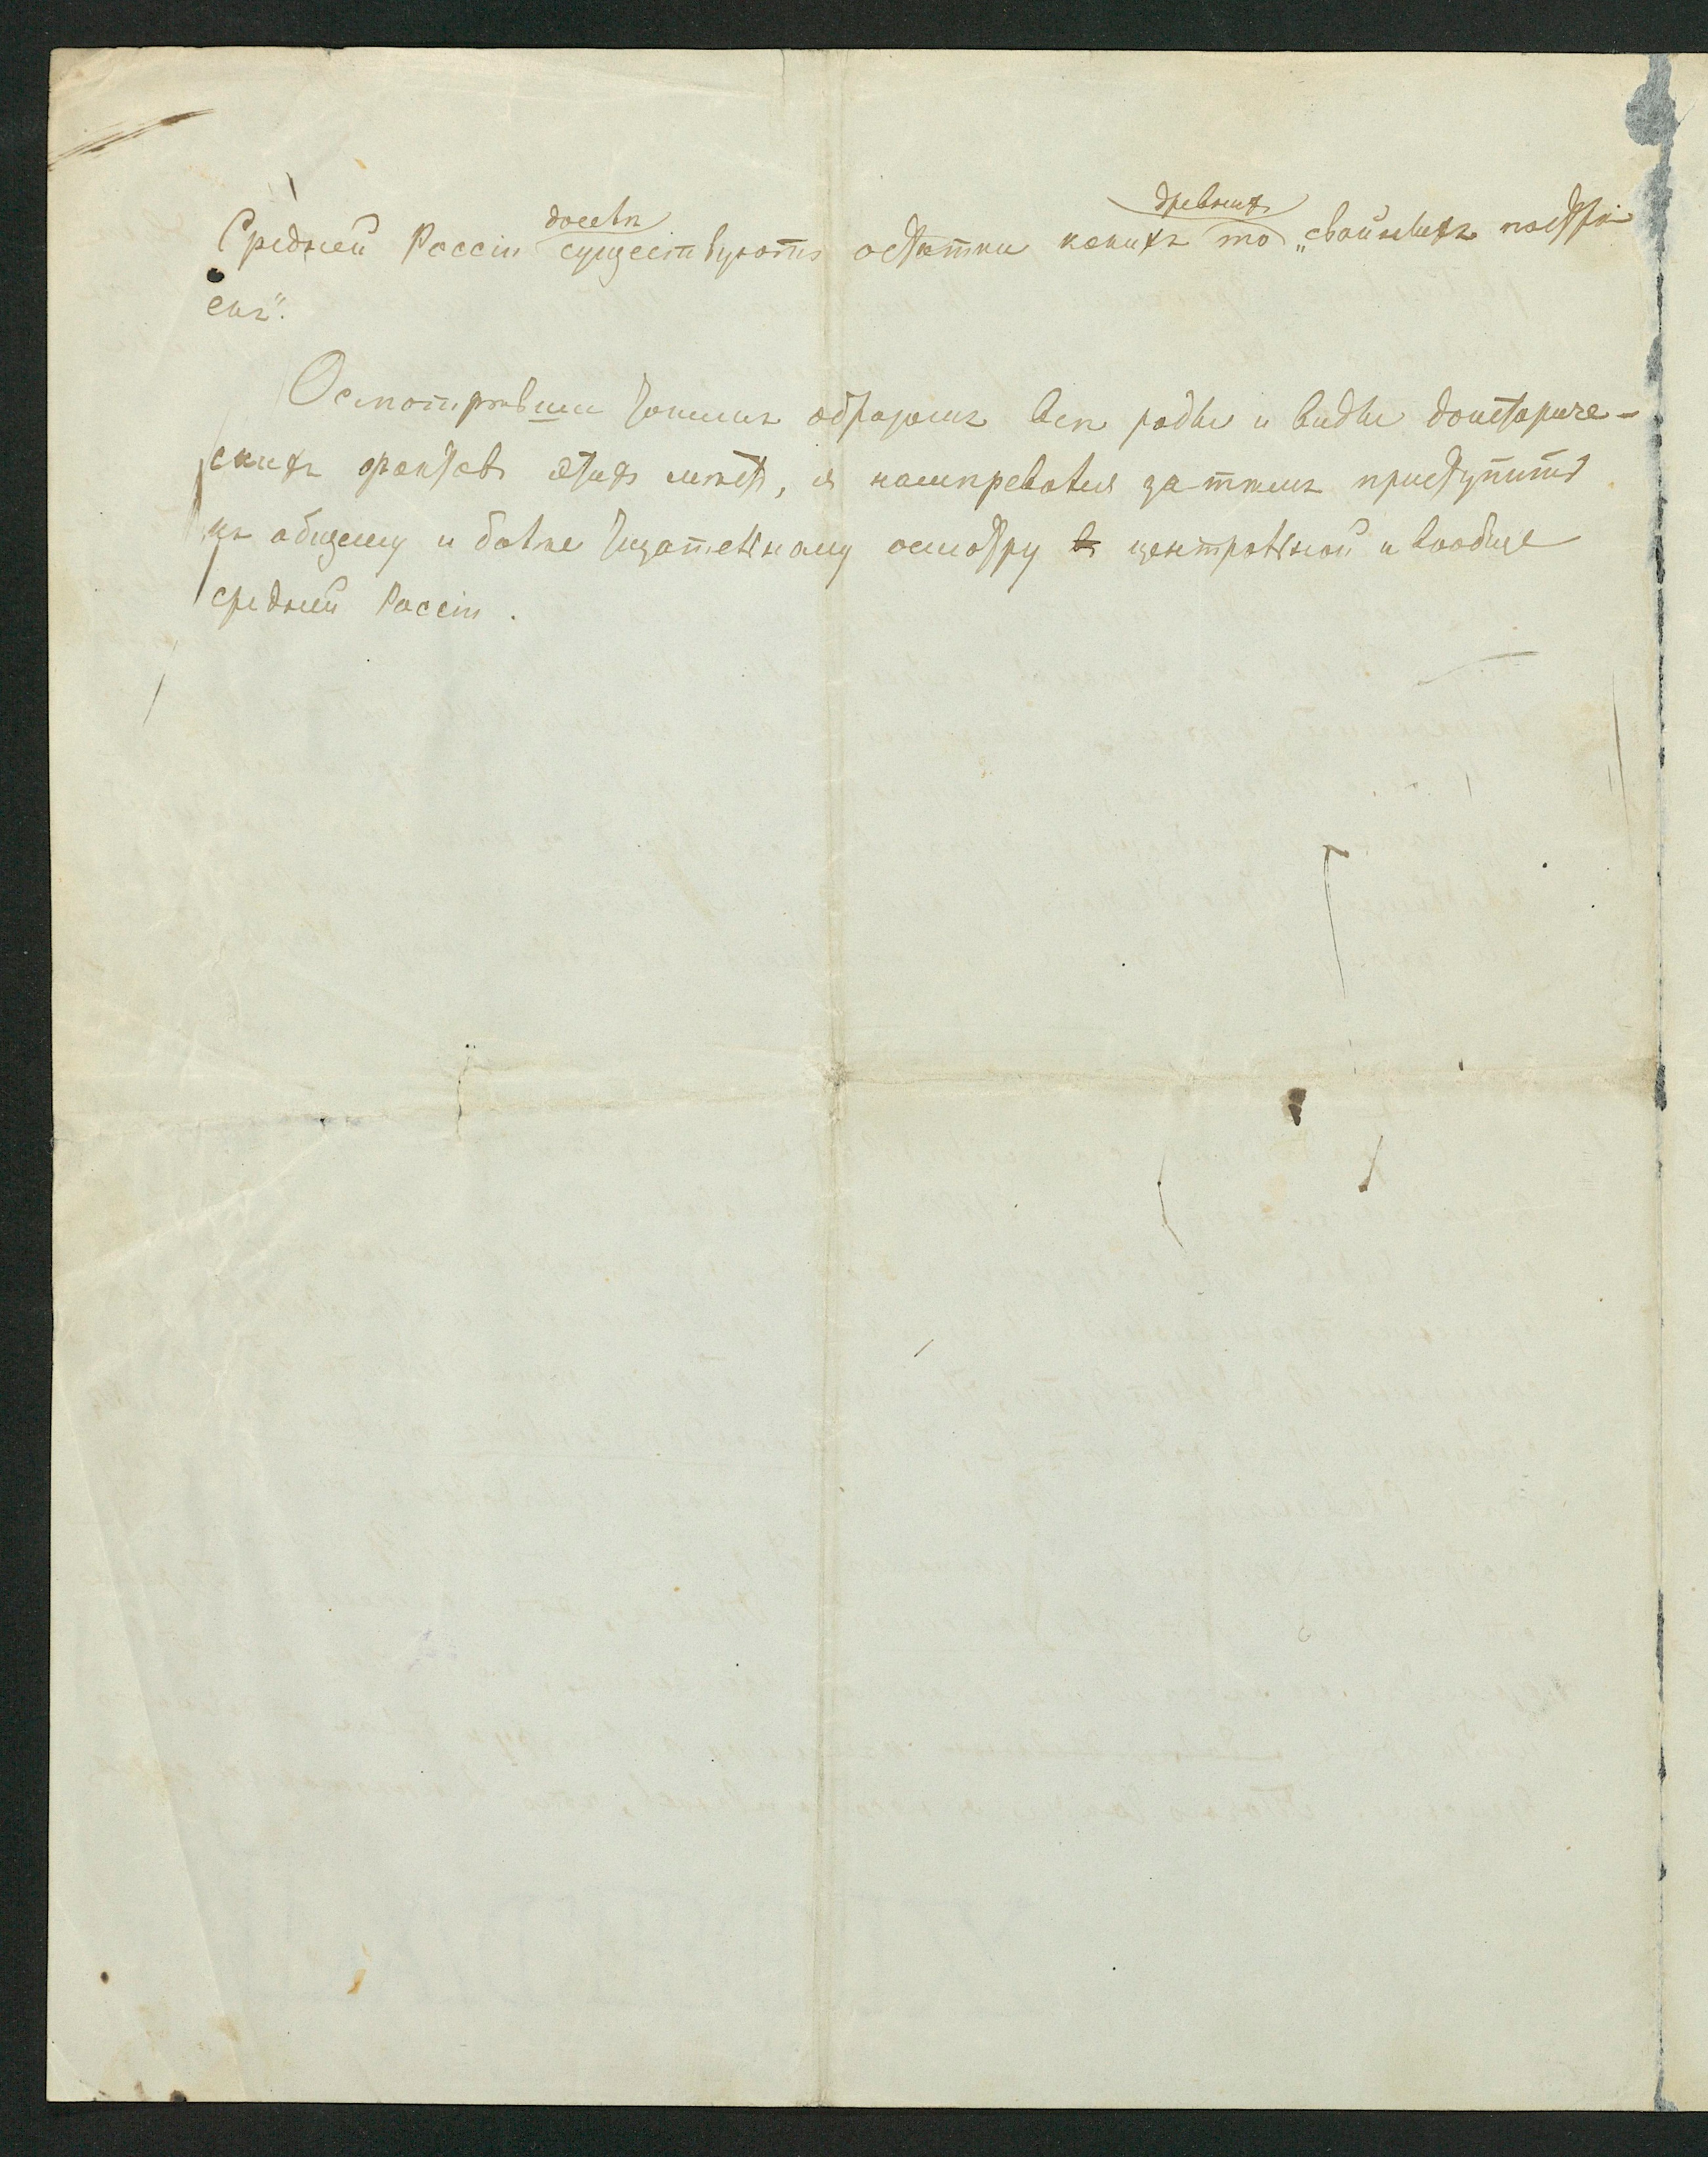 доселѣ древнихъ
Средней Россіи существуютъ остатки какихъ то „свайныхъ постро
екъ“.
Осмотрѣвши такимъ образомъ всѣ роды и виды доисториче-
скихъ фактовъ этихъ мѣстъ, я намѣревался затѣмъ приступить
къ общему и болѣе тщательному осмотру центральной и вообще
средней Россіи.